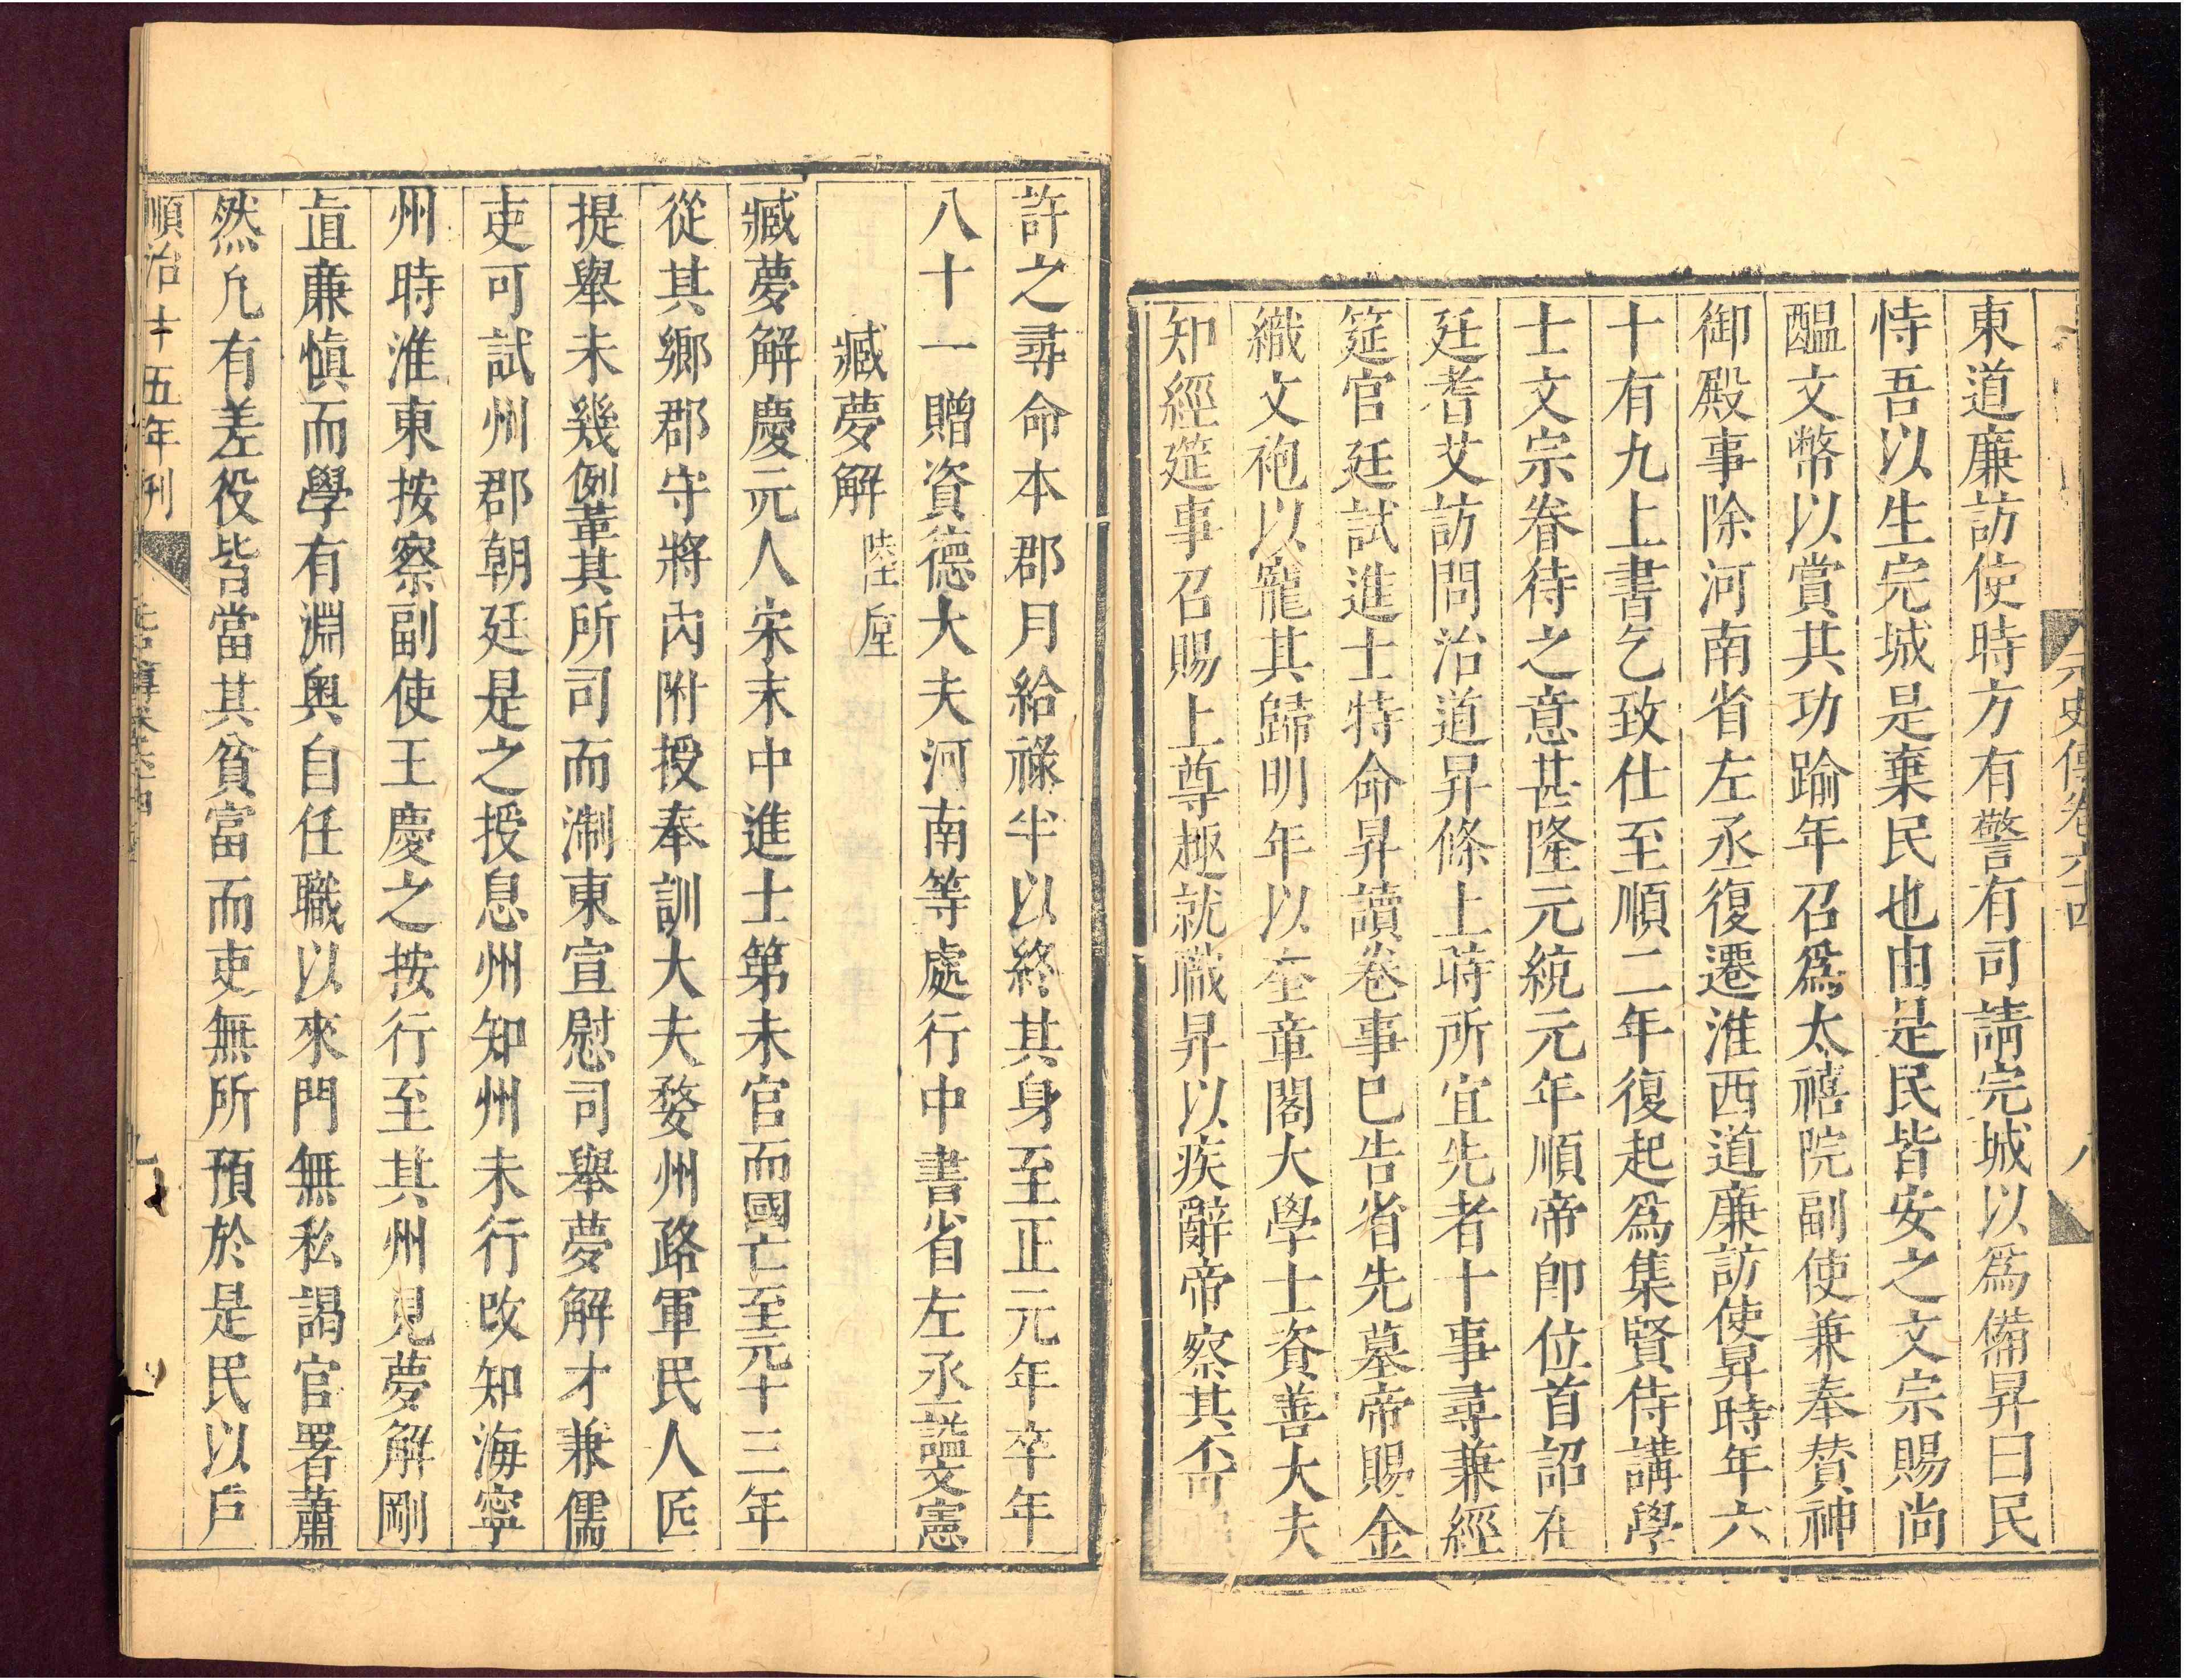 元史傳卷六十四 八
東道廉訪使時方有警有司請完城以爲備昇曰民
恃吾以生完城是棄民也由是民皆安之文宗賜尚
醞文幣以賞其功踰年召爲太禧院副使兼奉賛神
御殿事除河南省左丞復遷淮西道廉訪使昇時年六
十有九上書乞致仕至順二年復起爲集賢侍講學
士文宗眷待之意甚隆元統元年順帝卽位首詔在
廷耆艾訪問治道昇條上時所宜先者十事尋兼經
筵官廷試進士特命昇讀卷事已告省先墓帝賜金
織文袍以寵其歸明年以奎章閣大學士資善大夫
知經筵事召賜上尊趣就職昇以疾辭帝察其不可
許之尋命本郡月給祿半以終其身至正元年卒年
八十一贈資德大夫河南等處行中書省左丞諡文憲
臧夢解 陸垕
臧夢解慶元人宋末中進士第未官而國亡至元十三年
從其鄉郡守將內附授奉訓大夫婺州路軍民人匠
提舉未幾例革其所司而淛東宣慰司舉夢解才兼儒
吏可試州郡朝廷是之授息州知州未行改知海寧
州時淮東按察副使王慶之按行至其州見夢解剛
直廉愼而學有淵奥自任職以來門無私謁官署蕭
然凢有差役皆當其貧富而吏無所預於是民以戶
順治十五年刊 元史傳卷六十四 九